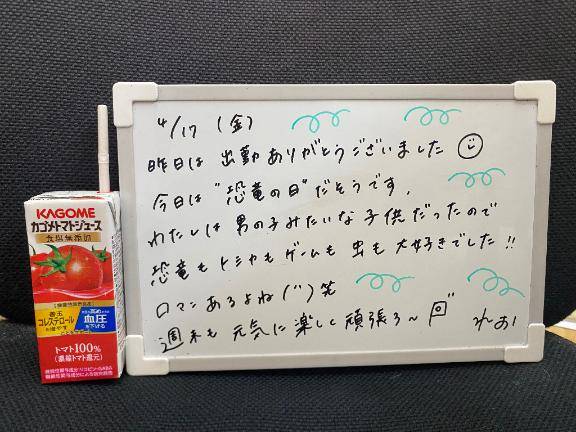 4/17 (金)
昨日は 出勤ありがとうございました
今日は "恐竜の日" だそうです.
わたしは 男の子みたいな子供だったので
恐竜も トミカも ゲームも 虫も 大好きでした!!
ロマンあるよね(^^)笑
週末も 元気に楽しく頑張ろ〜
KAGOME
カゴメトマトジュース
食塩無添加
善玉
コレステロール
を増やす
血圧
を下げる
トマト100%
(濃縮トマト還元)